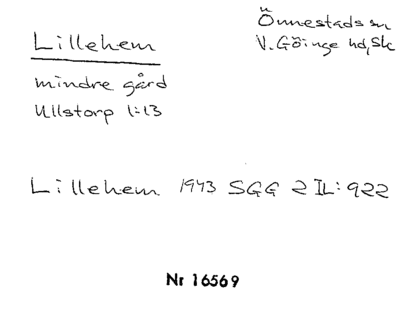 Lillehem
Önnestads sn
V. Göinge hd, Sk
mindre gård
Ullstorp 1:13
Lillehem 1943 SGG 2 IL: 922
Nr 16569